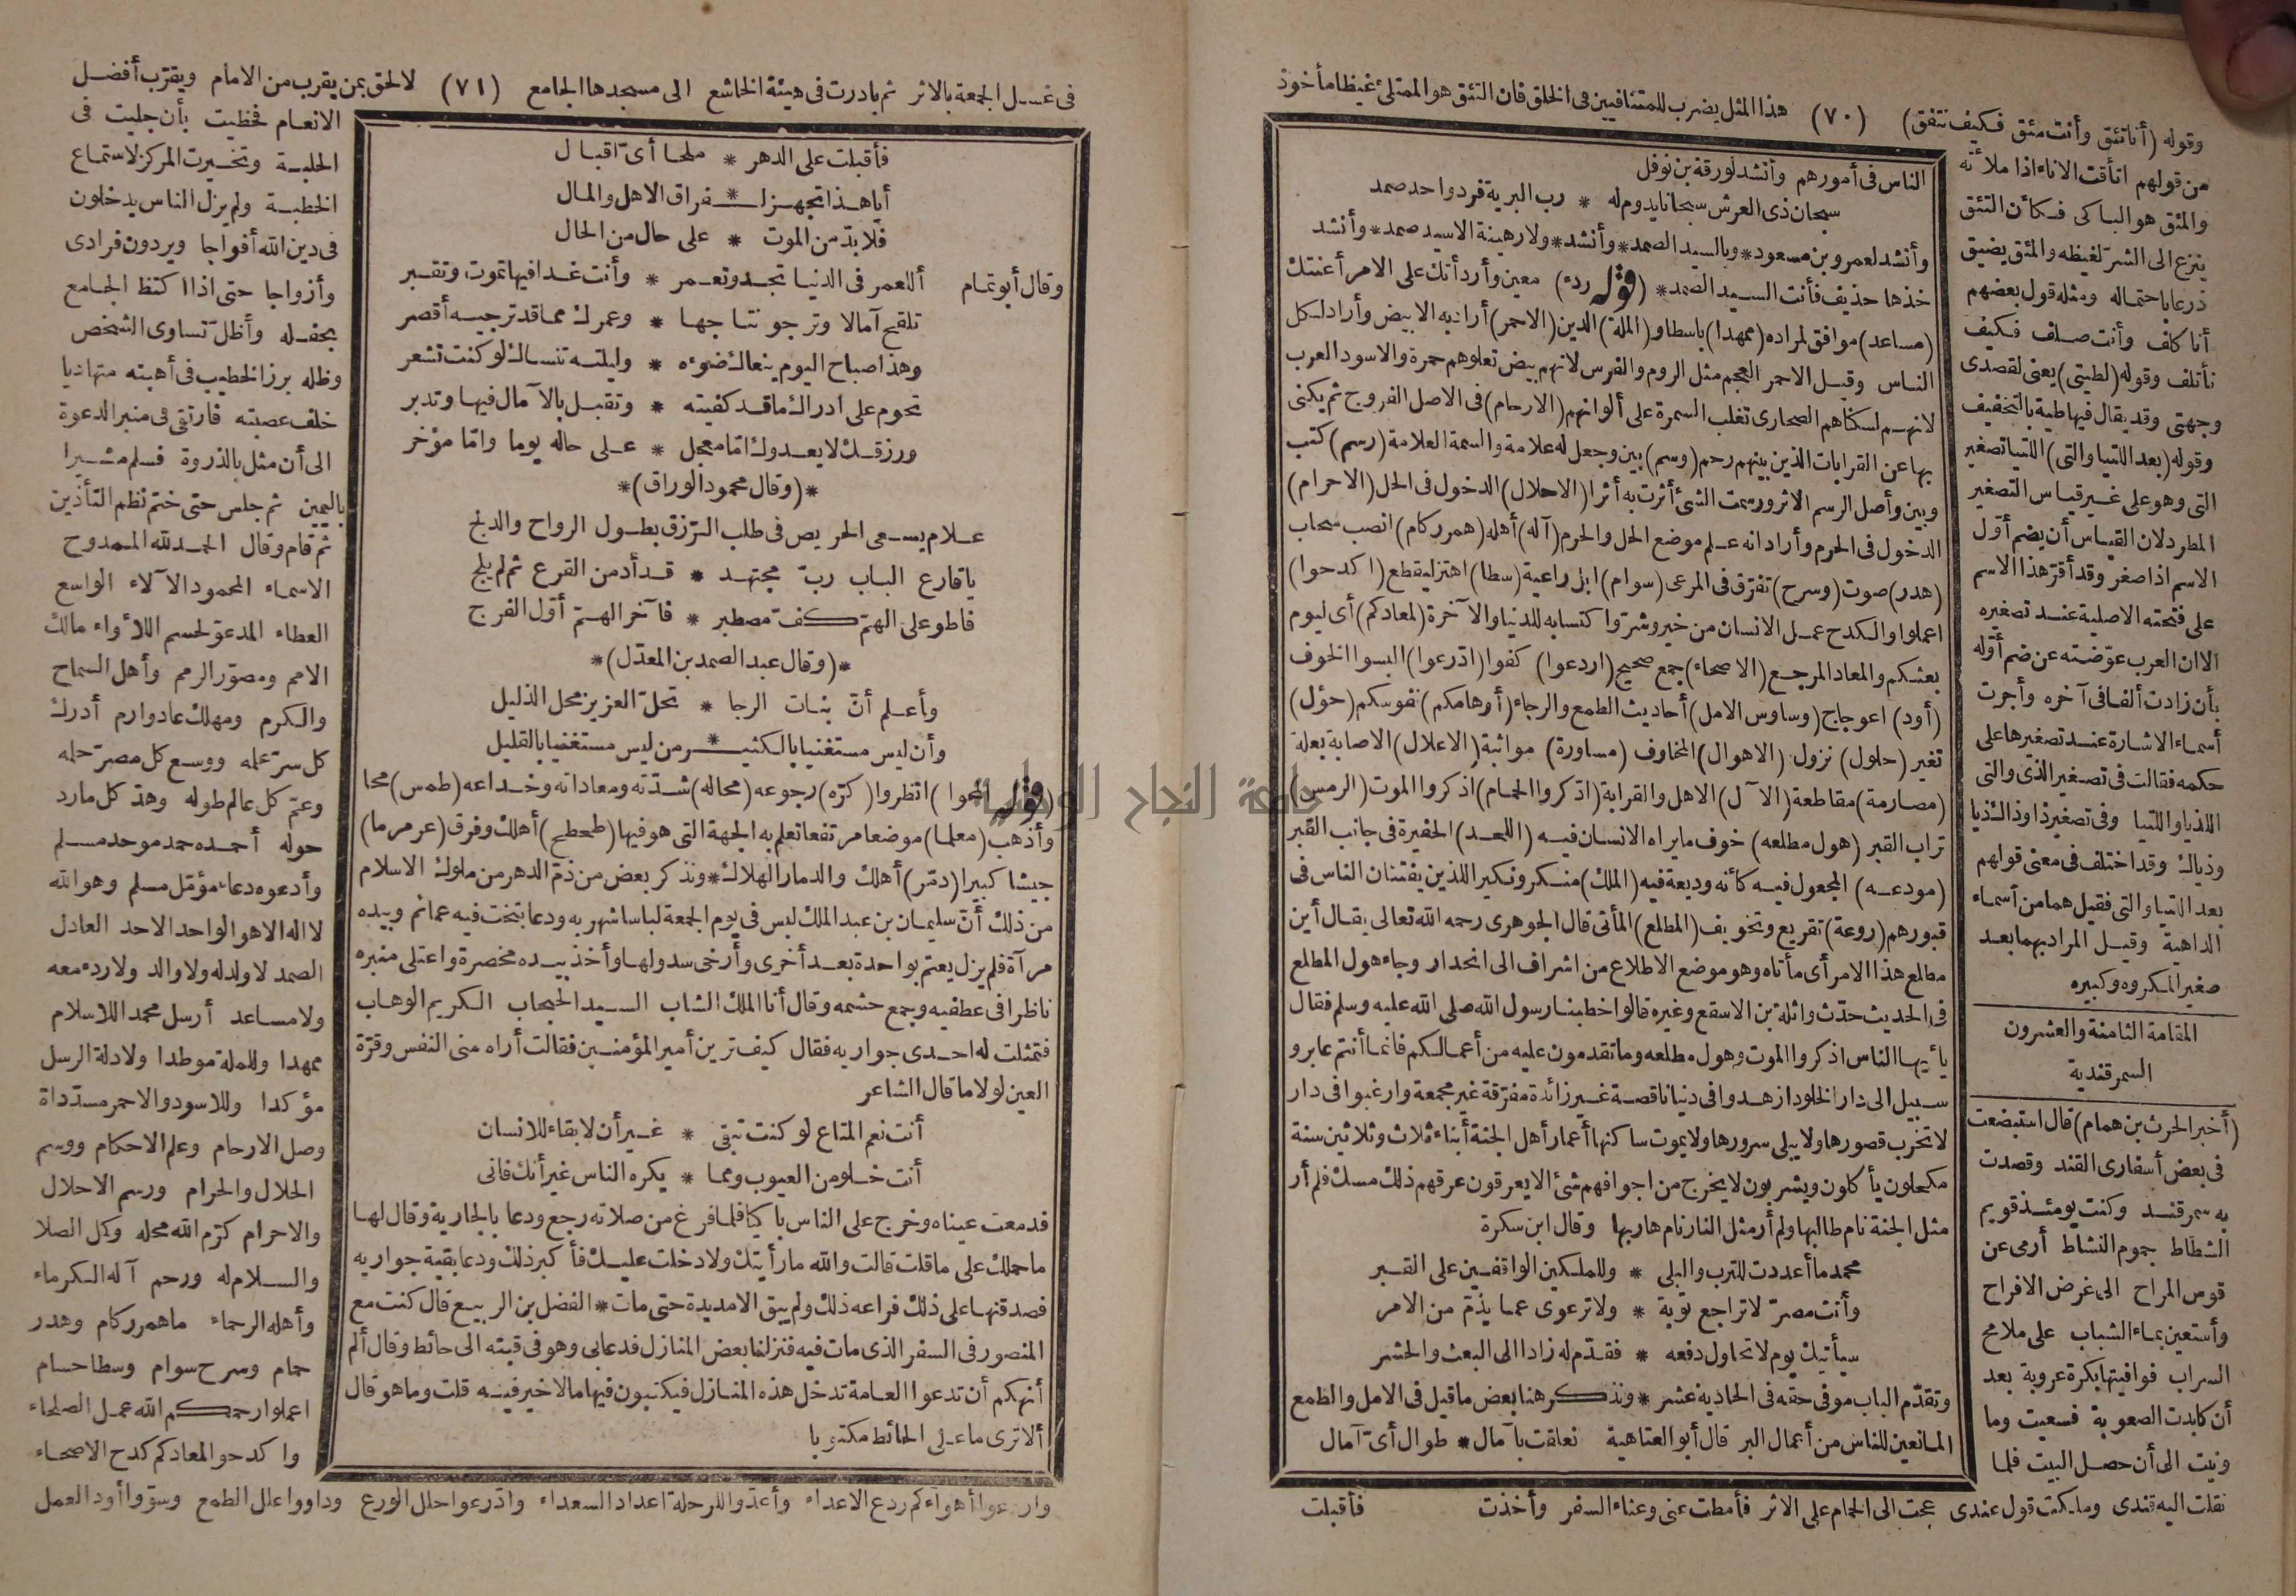 وقوله (أنا تئق وأنت مئق فكيف نتفق) (٧٠) هذا المثل يضرب للمتنافيين فى الخلق فان التئق هو الممتلئ غيظا مأخوذ
من قولهم اتأقت الاناء اذا ملأته
والمئق هو الباكى فكأن التئق
ينزع الى الشر لغيظه والمئق يضيق
ذرعا باحتماله ومثله قول بعضهم
أنا كلف وأنت صلف فكيف
نأتلف وقوله (لطيتى) يعنى لقصدى
وجهتى وقد يقال فيها طية بالتخفيف
وقوله (بعد اللتيا والتى) اللتيا تصغير
التى وهو على غير قياس التصغير
المطرد لان القياس أن يضم أول
الاسم اذا صغر وقد أقر هذا الاسم
على فتحته الاصلية عند تصغيره
الا ان العرب عوضته عن ضم أوله
بأن زادت ألفا فى آخره وأجرت
أسماء الاشارة عند تصغيرها على
حكمه فقالت فى تصغير الذى والتى
اللذيا واللتيا وفى تصغير ذا وذاك ذيا
وذياك وقد اختلف فى معنى قولهم
بعد اللتيا والتى فقيل هما من أسماء
الداهية وقيل المراد بهما بعد
صغير المكروه وكبيره
المقامة الثامنة والعشرون
السمرقندية
(أخبر الحرث بن همام) قال استبضعت
فى بعض أسفارى القند وقصدت
به سمرقند وكنت يومئذ قويم
الشطاط جموم النشاط أرمى عن
قوس المراح الى غرض الافراح
وأستعين بماء الشباب على ملامح
السراب فوافيتها بكرة عروبة بعد
أن كابدت الصعوبة فسعيت وما
ونيت الى أن حصل البيت فلما
نقلت اليه قندى وملكت قول عندى عجت الى الحمام على الاثر فأمطت عنى وعثاء السفر وأخذت
الناس فى أمورهم وأنشد لورقة بن نوفل
سبحان ذى العرش سبحانا يدوم له * رب البرية فرد واحد صمد
وأنشد لعمرو بن مسعود * وبالسيد الصمد * وأنشد * ولا رهينة الا سيد صمد * وأنشد
خذها حذيف فأنت السيد الصمد * (قوله ردء) معين وأردأتك على الامر أعنتك
(مساعد) موافق لمراده (ممهدا) باسطا و (الملة) الدين (الاحمر) أراد به الابيض وأراد لكل
الناس وقيل الاحمر العجم مثل الروم والفرس لانهم بيض تعلوهم حمرة والاسود العرب
لانهم لسكناهم الصحارى تغلب السمرة على ألوانهم (الارحام) فى الاصل الفروج ثم يكنى
بها عن القرابات الذين بينهم رحم (وسم) بين وجعل له علامة والسمة العلامة (رسم) كتب
وبين وأصل الرسم الاثر ورسمت الشئ أثرت به أثرا (الاحلال) الدخول فى الحل (الاحرام)
الدخول فى الحرم وأراد انه علم موضع الحل والحرم (آله) أهله (همر ركام) انصب سحاب
(هدر) صوت (وسرح) تفرق فى المرعى (سوام) ابل راعية (سطا) اهتز ليقطع (اكدحوا)
اعملوا والكدح عمل الانسان من خير وشر واكتسابه للدنيا والآخرة (لمعادكم) أى ليوم
بعثكم والمعاد المرجع (الاصحاء) جمع صحيح (اردعوا) كفوا (ادرعوا) البسوا الخوف
(أود) اعوجاج (وساوس الامل) أحاديث الطمع والرجاء (أوهامكم) نفوسكم (حؤل)
تغير (حلول) نزول (الاهوال) المخاوف (مساورة) مواثبة (الاعلال) الاصابة بعلة
(مصارمة) مقاطعة (الآل) الاهل والقرابة (ادكروا الحمام) اذكروا الموت (الرمس)
تراب القبر (هول مطلعه) خوف ما يراه الانسان فيه (اللحد) الحفيرة فى جانب القبر
(مودعه) المجعول فيه كأنه وديعة فيه (الملك) منكر ونكير اللذين يفتنان الناس فى
قبورهم (روعة) تقريع وتخويف (المطلع) المأتى قال الجوهرى رحمه الله تعالى يقال أين
مطلع هذا الامر أى مأتاه وهو موضع الاطلاع من اشراف الى انحدار وجاء هول المطلع
فى الحديث حدث واثلة بن الاسقع وغيره قالوا خطبنا رسول الله صلى الله عليه وسلم فقال
يأيها الناس اذكروا الموت وهول مطلعه وما تقدمون عليه من أعمالكم فانما أنتم عابرو
سبيل الى دار الخلود ازهدوا فى دنيا ناقصة غير زائدة مفرقة غير مجمعة وارغبوا فى دار
لا تخرب قصورها ولا يبلى سرورها ولا يموت ساكنها أعمار أهل الجنة أبناء ثلاث وثلاثين سنة
مكحلون يأكلون ويشربون لا يخرج من اجوافهم شئ الا يعرقون عرقهم ذلك مسك فلم أر
مثل الجنة نام طالبها ولم أر مثل النار نام هاربها وقال ابن سكرة
محمد ما أعددت للترب والبلى * وللملكين الواقفين على القبر
وأنت مصر لا تراجع توبة * ولا ترعوى عما يذم من الامر
سيأتيك يوم لا تحاول دفعه * فقدم له زادا الى البعث والحشر
وتقدم الباب موفى حقه فى الحادية عشر * ونذكر هنا بعض ما قيل فى الامل والطمع
المانعين للناس من أعمال البر قال أبو العتاهية تعلقت بآمال * طوال أى آمال
فأقبلت
فى غسل الجمعة بالاثر ثم بادرت فى هيئة الخاشع الى مسجدها الجامع (٧١) لالحق بمن يقرب من الامام ويقرب أفضل
فأقبلت على الدهر * ملحا أى اقبال
أيا هذا تجهز لـ * ـفراق الاهل والمال
فلا بد من الموت * على حال من الحال
وقال أبو تمام أللعمر فى الدنيا تجد وتعمر * وأنت غدا فيها تموت وتقبر
تلقح آمالا وترجو نتاجها * وعمرك مما قد ترجيه أقصر
وهذا صباح اليوم ينعاك ضوءه * وليلته تنساك لو كنت تشعر
تحوم على ادراك ما قد كفيته * وتقبل بالآمال فيها وتدبر
ورزقك لا يعدوك اما معجل * على حاله يوما واما مؤخر
*(وقال محمود الوراق)*
علام يسعى الحريص فى طلب الرزق بطول الرواح والدلج
ياقارع الباب رب مجتهد * قد أدمن القرع ثم لم يلج
فاطو على الهم كف مصطبر * فآخر الهم أول الفرج
*(وقال عبد الصمد بن المعذل)*
وأعلم أن بنات الرجا * تحل العزيز محل الذليل
وأن ليس مستغنيا بالكثيـ * ـر من ليس مستغنيا بالقليل
(قوله المحوا) انظروا (كره) رجوعه (محاله) شدته ومعاداته وخداعه (طمس) محا
وأذهب (معلما) موضعا مرتفعا تعلم به الجهة التى هو فيها (طحطح) أهلك وفرق (عرمرما)
جيشا كبيرا (دمر) أهلك والدمار الهلاك * ونذكر بعض من ذم الدهر من ملوك الاسلام
من ذلك أن سليمان بن عبد الملك لبس فى يوم الجمعة لباسا شهر به ودعا بتخت فيه عمائم وبيده
مرآة فلم يزل يعتم بواحدة بعد أخرى وأرخى سدولها وأخذ بيده مخصرة واعتلى منبره
ناظرا فى عطفيه وجمع حشمه وقال أنا الملك الشاب السيد الحجاب الكريم الوهاب
فتمثلت له احدى جواريه فقال كيف ترين أمير المؤمنين فقالت أراه منى النفس وقرة
العين لولا ما قال الشاعر
أنت نعم المتاع لو كنت تبقى * غير أن لا بقاء للانسان
أنت خلو من العيوب ومما * يكره الناس غير أنك فانى
فدمعت عيناه وخرج على الناس باكيا فلما فرغ من صلاته رجع ودعا بالجارية وقال لها
ما حملك على ما قلت قالت والله ما رأيتك ولا دخلت عليك فأكبر ذلك ودعا بقية جواريه
فصدقنها على ذلك فراعه ذلك ولم يبق الا مديدة حتى مات * الفضل بن الربيع قال كنت مع
المنصور فى السفر الذى مات فيه فنزلنا بعض المنازل فدعانى وهو فى قبته الى حائط وقال ألم
أنهكم أن تدعوا العامة تدخل هذه المنازل فيكتبون فيها ما لا خير فيه قلت وما هو قال
ألا ترى ما على الحائط مكتوبا
الانعام فحظيت بأن جليت فى
الحلبة وتخيرت المركز لاستماع
الخطبة ولم يزل الناس يدخلون
فى دين الله أفواجا ويردون فرادى
وأزواجا حتى اذا اكتظ الجامع
بحفله وأظل تساوى الشخص
وظله برز الخطيب فى أهبته متهاديا
خلف عصبته فارتقى فى منبر الدعوة
الى أن مثل بالذروة فسلم مشيرا
باليمين ثم جلس حتى ختم نظم التأذين
ثم قام وقال الحمد لله الممدوح
الاسماء المحمود الآلاء الواسع
العطاء المدعو لحسم اللأواء مالك
الامم ومصور الرمم وأهل السماح
والكرم ومهلك عاد وارم أدرك
كل سر علمه ووسع كل مصر حلمه
وعم كل عالم طوله وهد كل مارد
حوله أحمده حمد موحد مسلم
وأدعوه دعاء مؤمل مسلم وهو الله
لا اله الا هو الواحد الاحد العادل
الصمد لا ولد له ولا والد ولا ردء معه
ولا مساعد أرسل محمدا للاسلام
ممهدا وللملة موطدا ولادلة الرسل
مؤكدا وللاسود والاحمر مسددا
وصل الارحام وعلم الاحكام ووسم
الحلال والحرام ورسم الاحلال
والاحرام كرم الله محله وكمل الصلاة
والسلام له ورحم آله الكرماء
وأهله الرحماء ما همر ركام وهدر
حمام وسرح سوام وسطا حسام
اعملوا رحمكم الله عمل الصلحاء
واكدحوا لمعادكم كدح الاصحاء
واردعوا أهواءكم ردع الاعداء وأعدوا للرحلة اعداد السعداء وادرعوا حلل الورع وداووا علل الطمع وسووا أود العمل
جامعة النجاح الوطنية